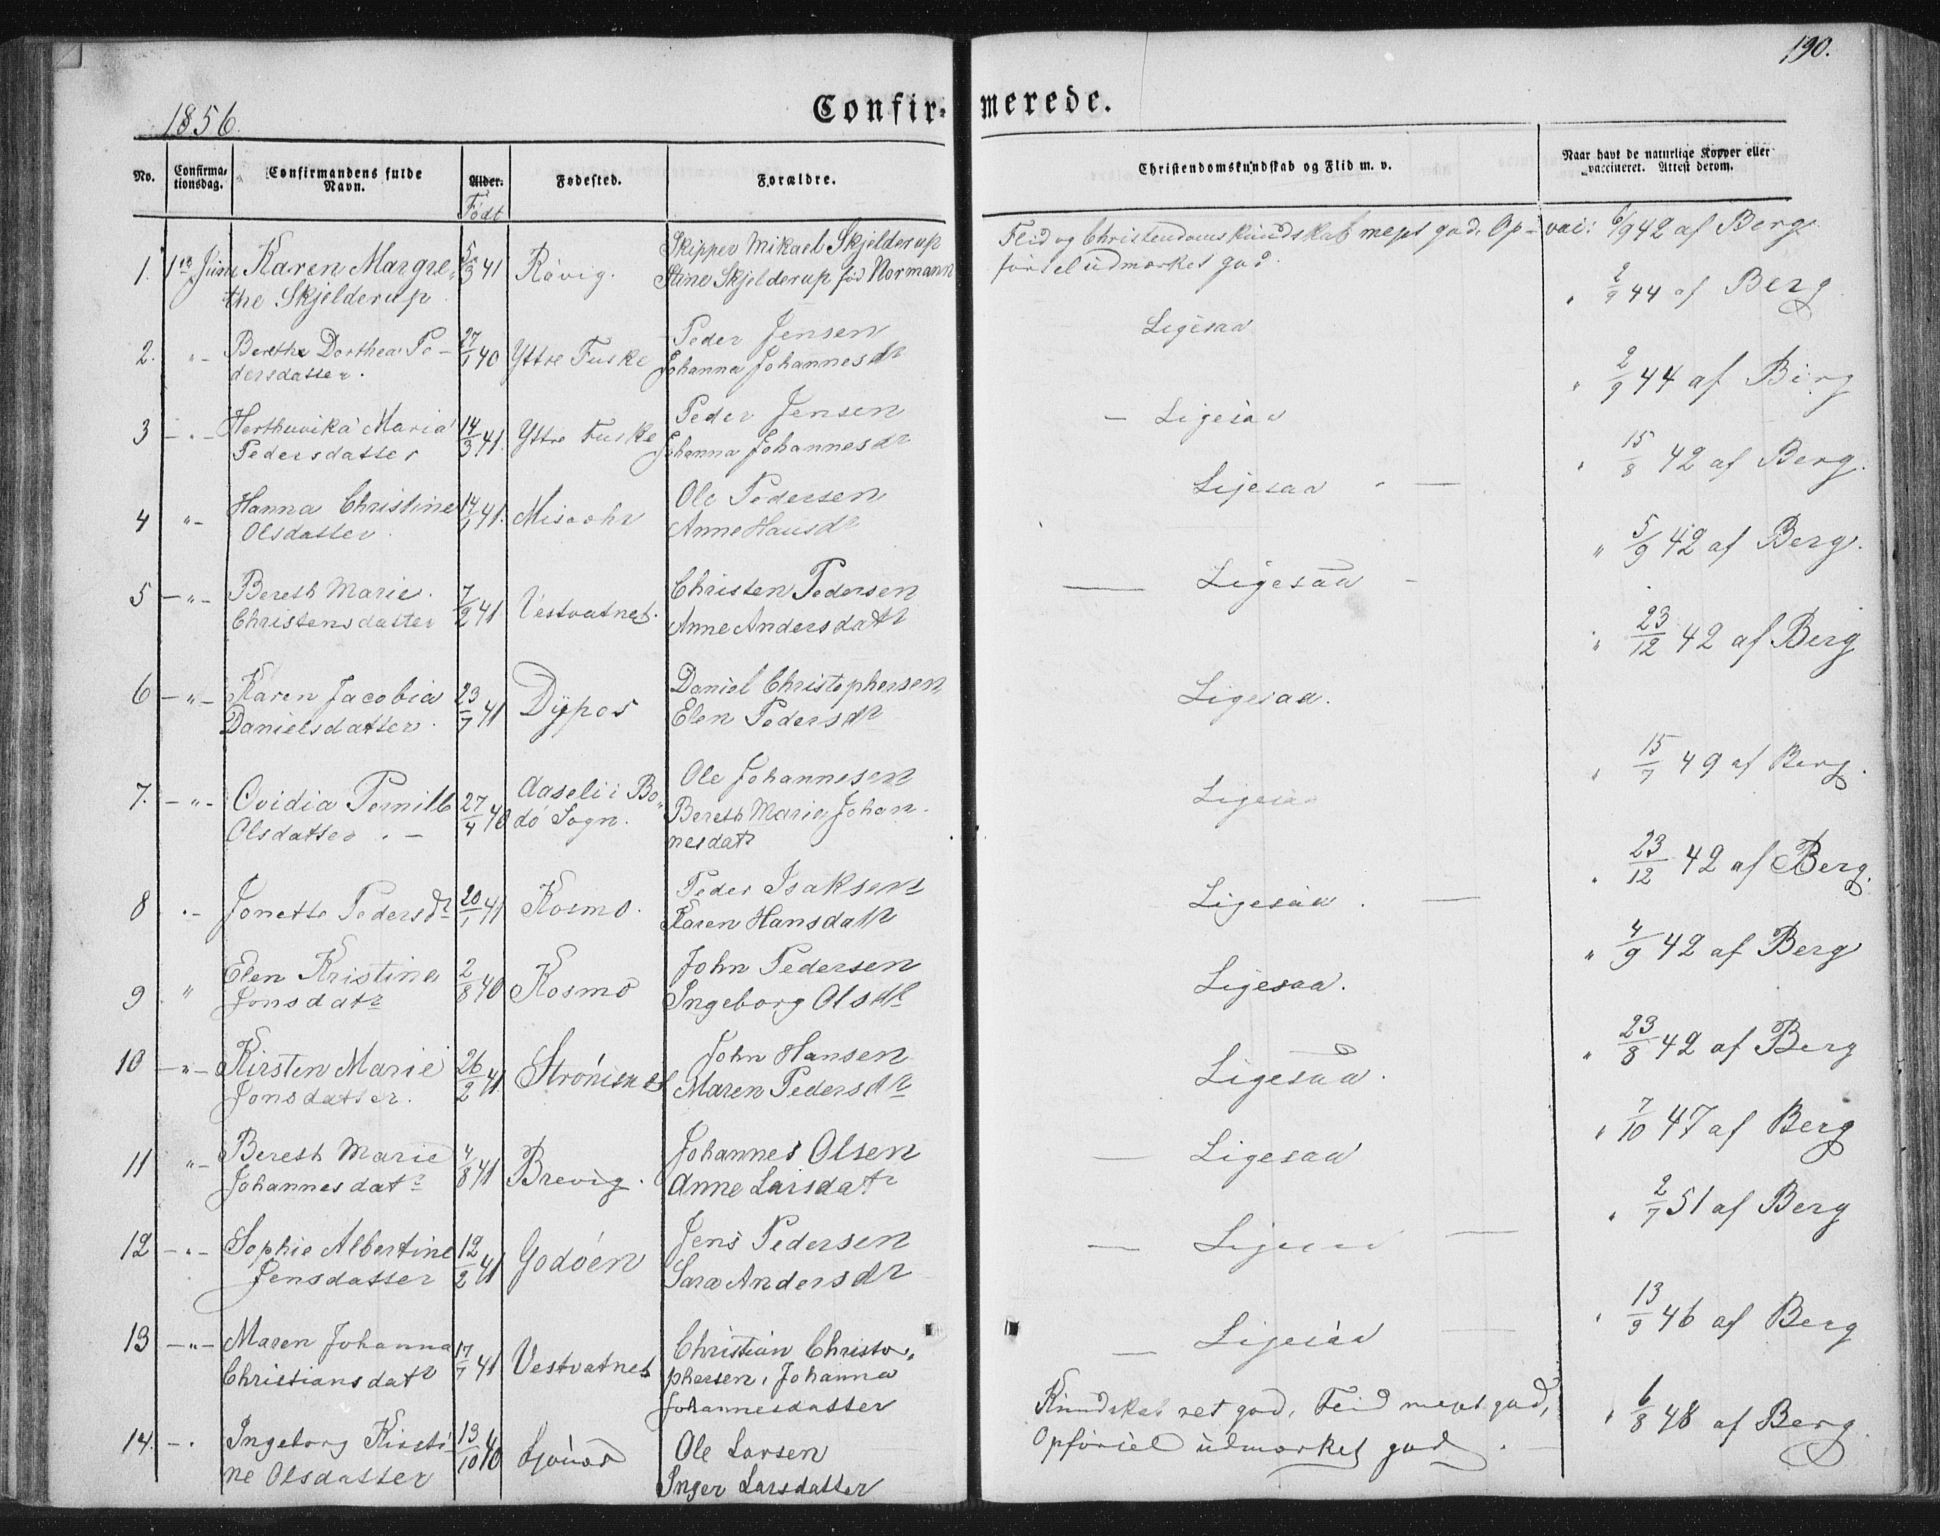 190.
1856.
Confir- merede.
No.
Confirma-
tionsdag.
Confirmandens fulde
Navn.
Alder.
Født
Fødested.
Forældre.
Christendomskundskab og Flid m. v.
Naar havt de naturlige Kopper eller
vaccineret. Attest derom.
1. 1ste Juni Karen Margre-
the Skjelderup
5/3 41
Røvig.
Skipper Mikael Skjelderup
Stine Skjelderup fød Normann
Flid og Christendomskundskab meget god. Op-
førsel udmærket god.
vac: 6/9 42 af Berg
2. "- Berethe Dorthea Pe-
dersdatter.
27/1 40
Yttre Fuske
Peder Jensen
Johanna Johannesdr
Ligesaa
" 2/9 44 af Berg
3 -"- Maria
Pedersdatter
14/3 41
Yttre Fuske
Peder Jensen
Johanna Johannesdr
- Ligesaa
" 2/9 44 af Berg
4 "- Hanna Christine
Olsdatter
14/1 41.
Ole Pedersen
Anne Hansdr
Ligesaa " —
" 15/8 42 af Berg.
5 -"- Bereth Marie
Christensdatter
7/2 41
Vestvatnet.
Christen Pedersen
Anne Andersdatr
— Ligesaa -
" 5/9 42 af Berg.
6 -"- Karen Jacobia
Danielsdatter.
23/7 41
Dypos
Daniel Christophersen
Elen Pedersdr
Ligesaa.
" 23/12 42 af Berg
7. -"- Ovidia Pernille
Olsdatter. -
27/4 40
Aaseli i Bo-
dø Sogn.
Ole Johannesen
Bereth Maria Johan-
nesdatr
Ligesaa
" 15/7 49 af Berg.
8 "- Jonette Pedersdr
20/1 41
Kosmo.
Peder Isaksen
Karen Hansdatr
Ligesaa. —
" 23/12 42 af Berg.
9 " Elen Kristina
Jonsdatr
2/8 40
Kosmo
John Pedersen
Ingeborg Olsdr
Ligesaa.
" 4/9 42 af Berg
10 -"- Kirsten Marie
Jonsdatter.
26/2 41
Strømsnes
John Hansen
Maren Pedersdr
Ligesaa.
" 23/8 42 af Berg
11 "- Bereth Marie
Johannesdatr
4/8 41
Brevig.
Johannes Olsen
Anne Larsdatr
— Ligesaa
" 7/10 47 af Berg
12 -"- Sophie Albertine
Jensdatter
12/2 41
Godøen
Jens Pedersen
Sara Andersdr
— Ligesaa —
" 2/7 51 af Berg
13 -"- Maren Johanna
Christiansdatr
17/7 41
Vestvatnet
Christian Christo-
phersen, Johanna
Johannesdatter
— Ligesaa —
" 13/9 46 af Berg
14. -. Ingeborg Kirsti-
ne Olsdatter
13/10 40
Ole Larsen
Inger Larsdatter
Kundskab ret god, Flid meget god,
Opførsel udmærket god.
" 6/8 48 af Berg